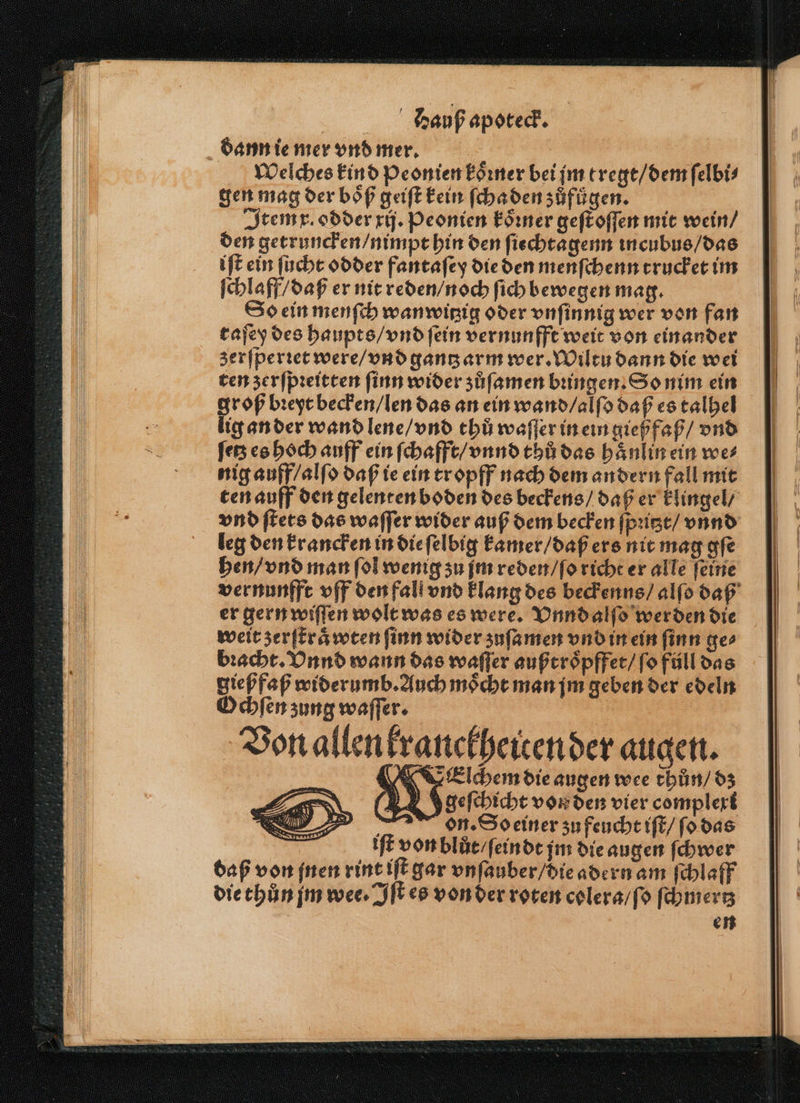 Hauß apoteck.
dann ie mer vnd mer.
Welches kind Peonien koͤꝛner bei jm tregt/dem ſelbi⸗
gen mag der boͤß geiſt kein ſchaden zuͦfuͤgen.
Item x. odder xij. Peonien koͤꝛner geſtoſſen mit wein/
den getruncken/nimpt hin den ſiechtagenn incubus/das
iſt ein ſucht odder fantaſey die den menſchenn trucket im
ſchlaff/daß er nit reden/noch ſich bewegen mag.
So ein menſch wanwitzig oder vnſinnig wer von fan
taſey des haupts/vnd ſein vernunfft weit von einander
zerſperꝛet were/vnd gantz arm wer. Wiltu dann die wei
ten zerſpꝛeitten ſinn wider zuͦſamen bꝛingen. So nim ein
groß bꝛeyt becken/len das an ein wand/alſo daß es talhel
lig an der wand lene/vnd thuͦ waſſer in ein gießfaß/ vnd
ſetz es hoch auff ein ſchafft/vnnd thuͦ das haͤnlin ein we⸗
nig auff/alſo daß ie ein tropff nach dem andern fall mit
ten auff den gelenten boden des beckens/ daß er klingel/
vnd ſtets das waſſer wider auß dem becken ſpꝛitzt/ vnnd
leg den krancken in die ſelbig kamer/daß ers nit mag gſe
hen/vnd man ſol wenig zu jm reden/ſo richt er alle ſeine
vernunfft vff den fall vnd klang des beckenns/ alſo daß
er gern wiſſen wolt was es were. Vnnd alſo werden die
weit zerſtraͤwten ſinn wider zuſamen vnd in ein ſinn ge⸗
bꝛacht. Vnnd wann das waſſer außtroͤpffet/ ſo fuͤll das
gießfaß widerumb. Auch moͤcht man jm geben der edeln
Ochſen zung waſſer.
Von allen kranckheiten der augen.
WElchem die augen wee thuͦn/ dz
geſchicht von den vier complexi
on. So einer zu feucht iſt/ ſo das
iſt von bluͦt/ſeindt jm die augen ſchwer
daß von jnen rint iſt gar vnſauber/die adern am ſchlaff
die thuͦn jm wee. Iſt es von der roten colera/ſo ſchmertz
en